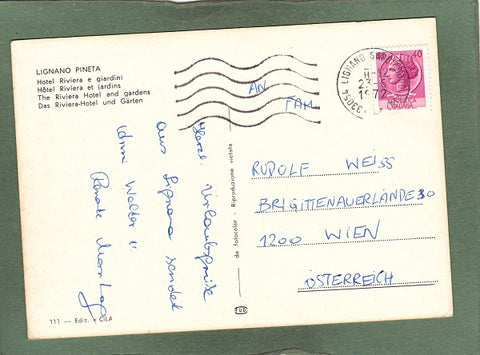 LIGNANO PINETA
Hotel Riviera e giardini
Hôtel Riviera et jardins
The Riviera Hotel and gardens
Das Riviera-Hotel und Gärten
33054 LIGNANO
1972
40
AN
FAM.
RUDOLF WEISS
BRIGITTENAUERLÄNDE 30
1200 WIEN
ÖSTERREICH
Herzl. Urlaubsgrüße
aus Lignano sendet
Walter u.
Renate
da Fotocolor - Riproduzione vietata
111 — Ediz.